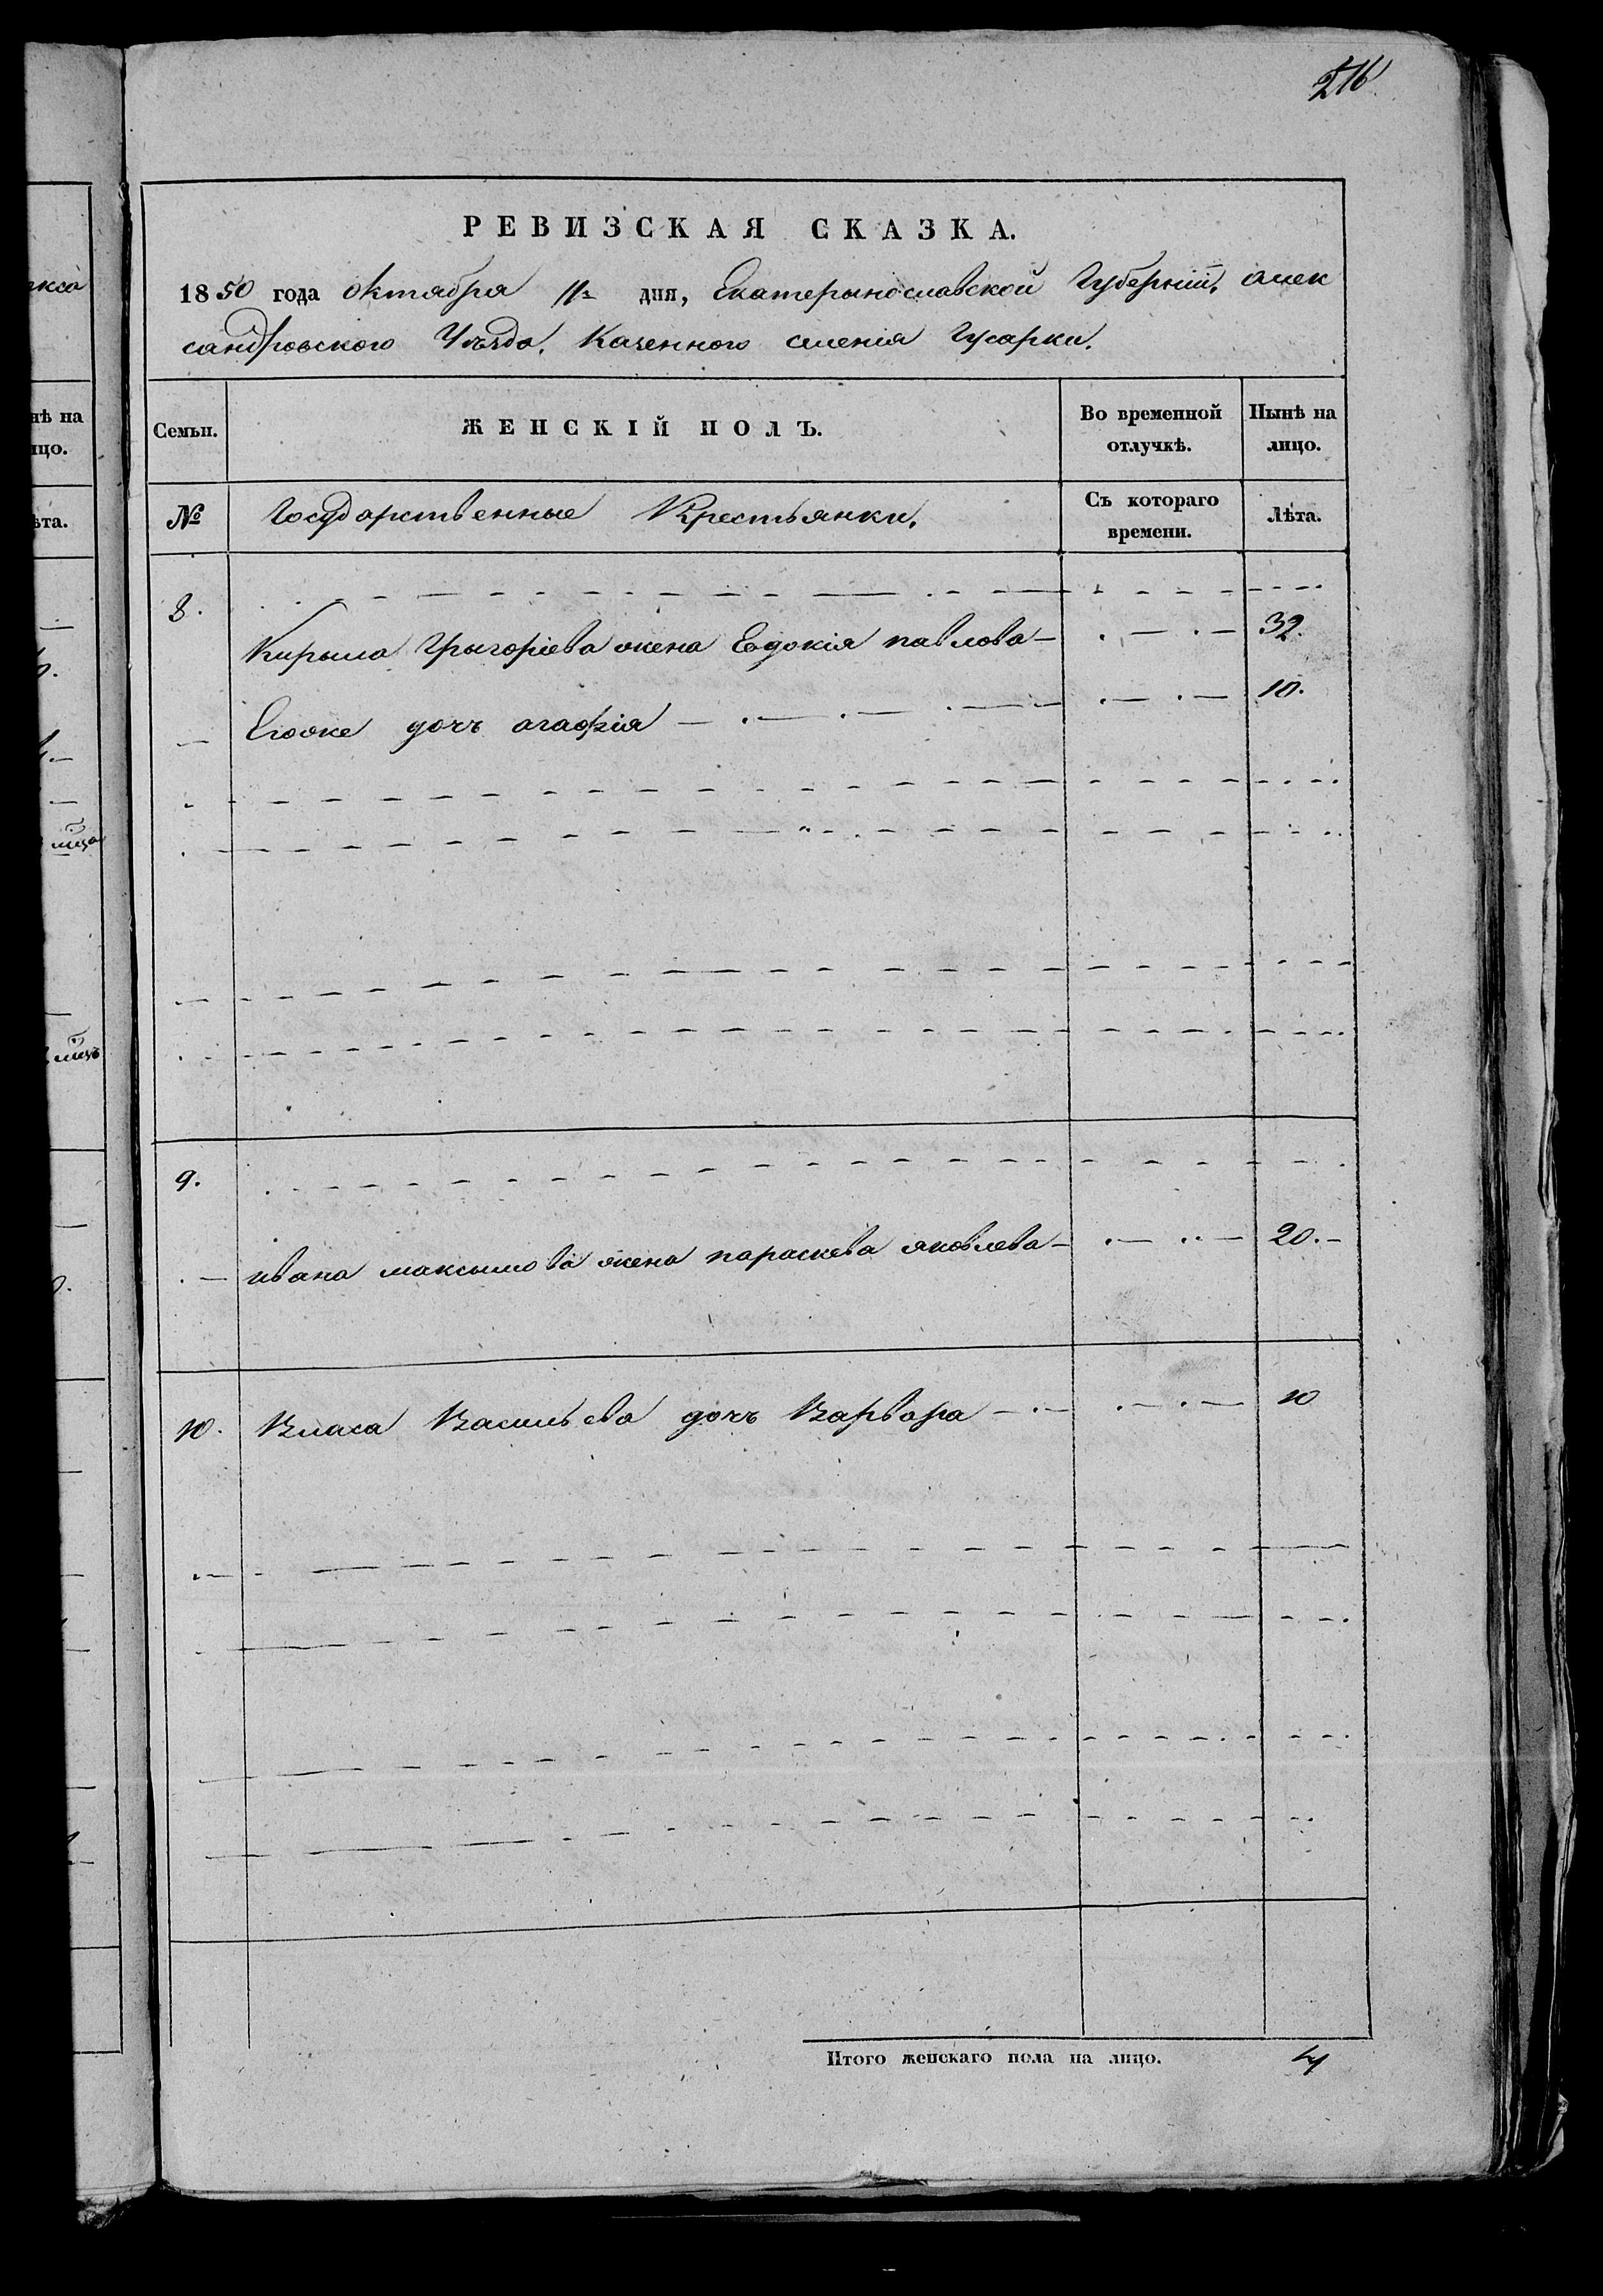 216
РЕВИЗСКАЯ СКАЗКА.
1850 года октября 11 дня, Екатерынославской Губерніи, алек
сандровского Уѣзда, Казенного селенія Гусарки.
Семьи. ЖЕНСКІЙ ПОЛЪ. Во временной отлучкѣ. Нынѣ на лицо.
№ Государственные Крестьянки. Съ котораго времени. Лѣта.
8.
Кирыла Григоріева жена Евдокія павлова 32.
Егоже дочъ агафія 10.
9.
ивана максымова жена параскева яковлева 20.
10. Власа Васильева дочъ Варвара 10
Итого женскаго пола на лицо. 4
нѣ на
ицо.
ѣта.